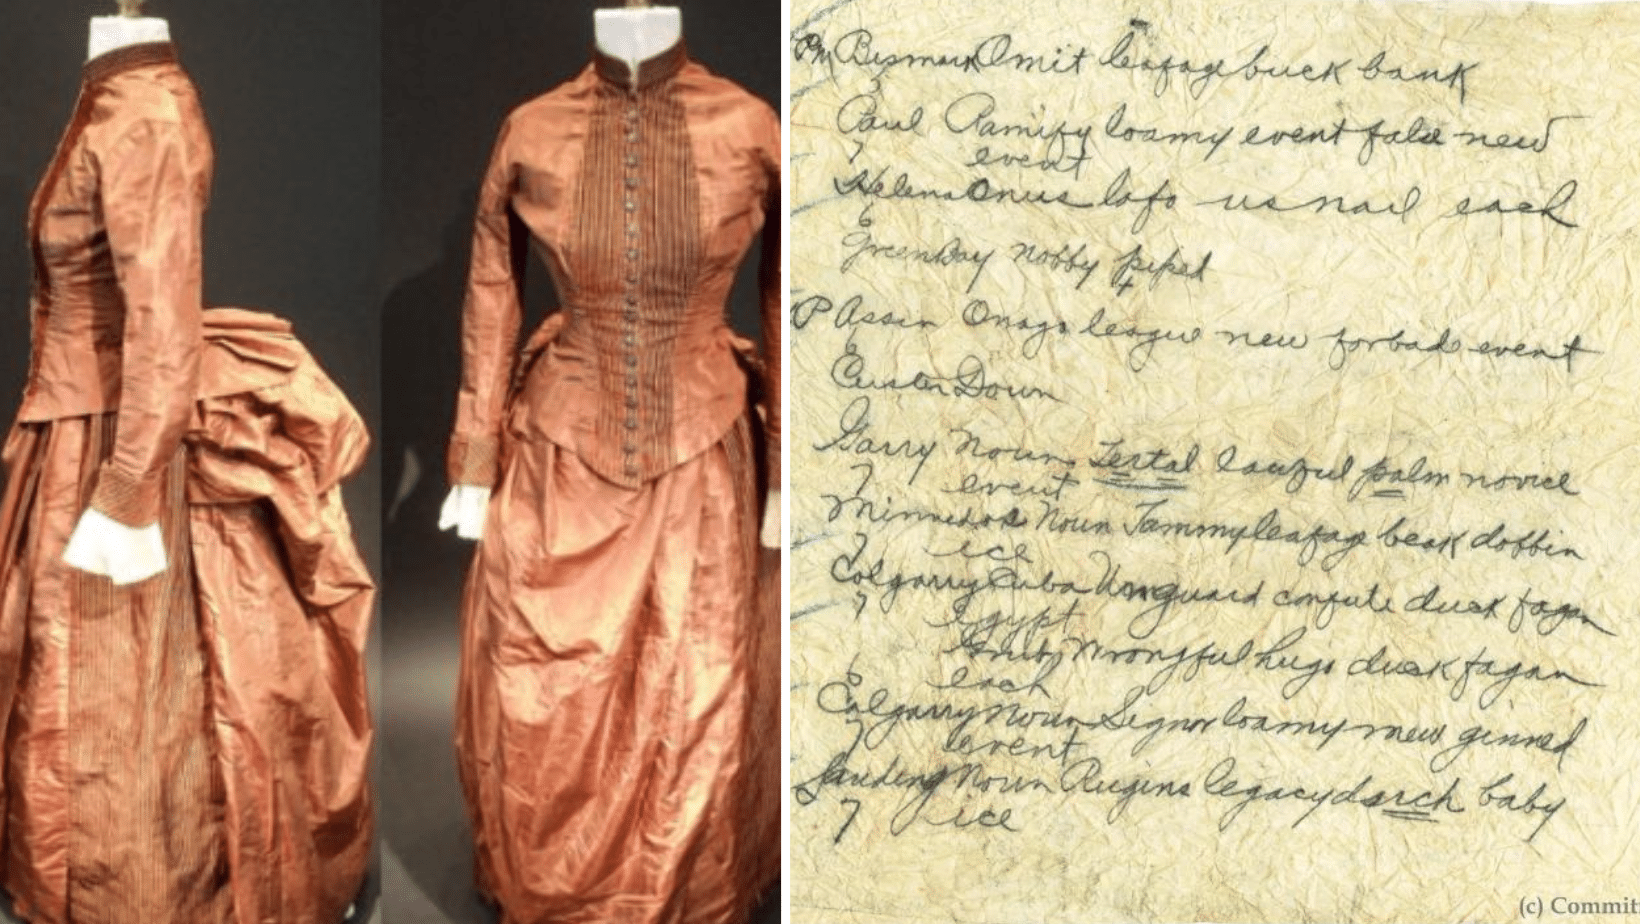 PM Bismark Omit leafage buck bank
Paul Ramify loamy event false new
event
Helena Onus lofo usnail each
6
Green Bay nobby piped
P Assin Onago league new forbade event
6
Custer Down
Garry Noun Tertal lawful palm novice
7 event
Minnedos Noun Jammy leafage beak dobbin
7 ice
Calgarry Cuba Unguard confute duck fagan
7 Egypt
Wrongful hugo duck fagan
6 each
Calgarry Noun Signor loamy mew ginned
7 event
Landing Noun Rugins legacy duck baby
7 ice
(c) Commit